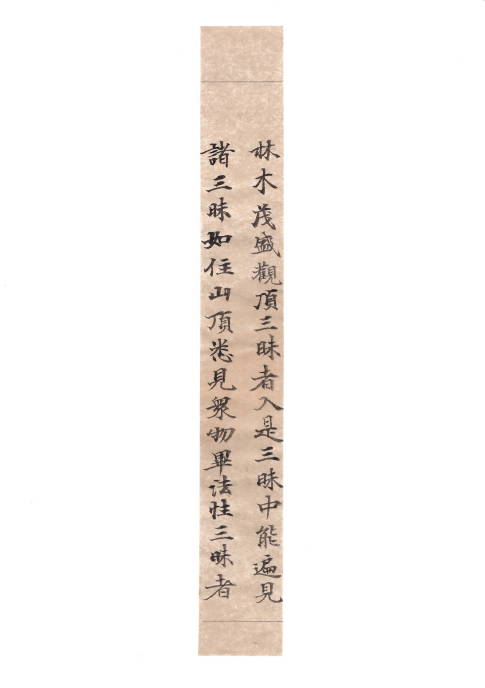 林木茂盛觀頂三昧者入是三昧中能遍見
諸三昧如住山頂悉見衆物畢法性三昧者